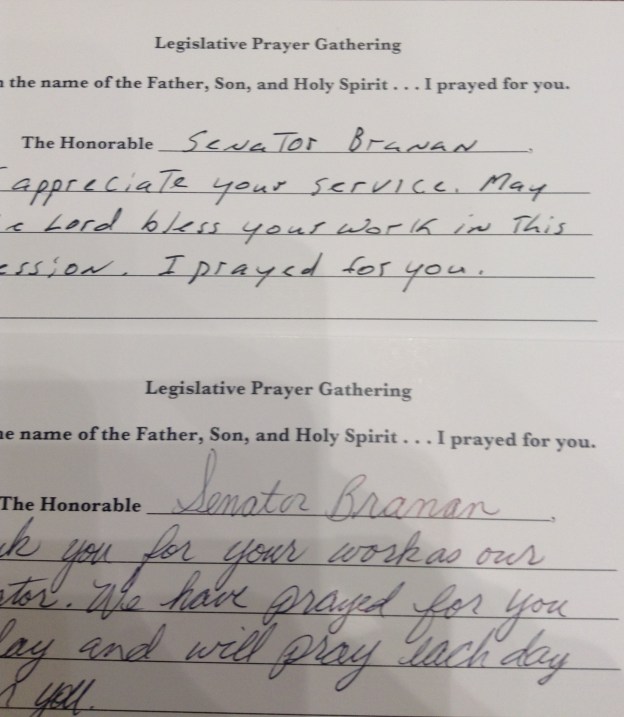 Legislative Prayer Gathering
the name of the Father, Son, and Holy Spirit . . . I prayed for you.
The Honorable Senator Branan,
appreciate your service. May
Lord bless your work in this
ession. I prayed for you.
Legislative Prayer Gathering
e name of the Father, Son, and Holy Spirit . . . I prayed for you.
The Honorable Senator Branan,
k you for your work as our
ator. We have prayed for you
ay and will pray each day
you.